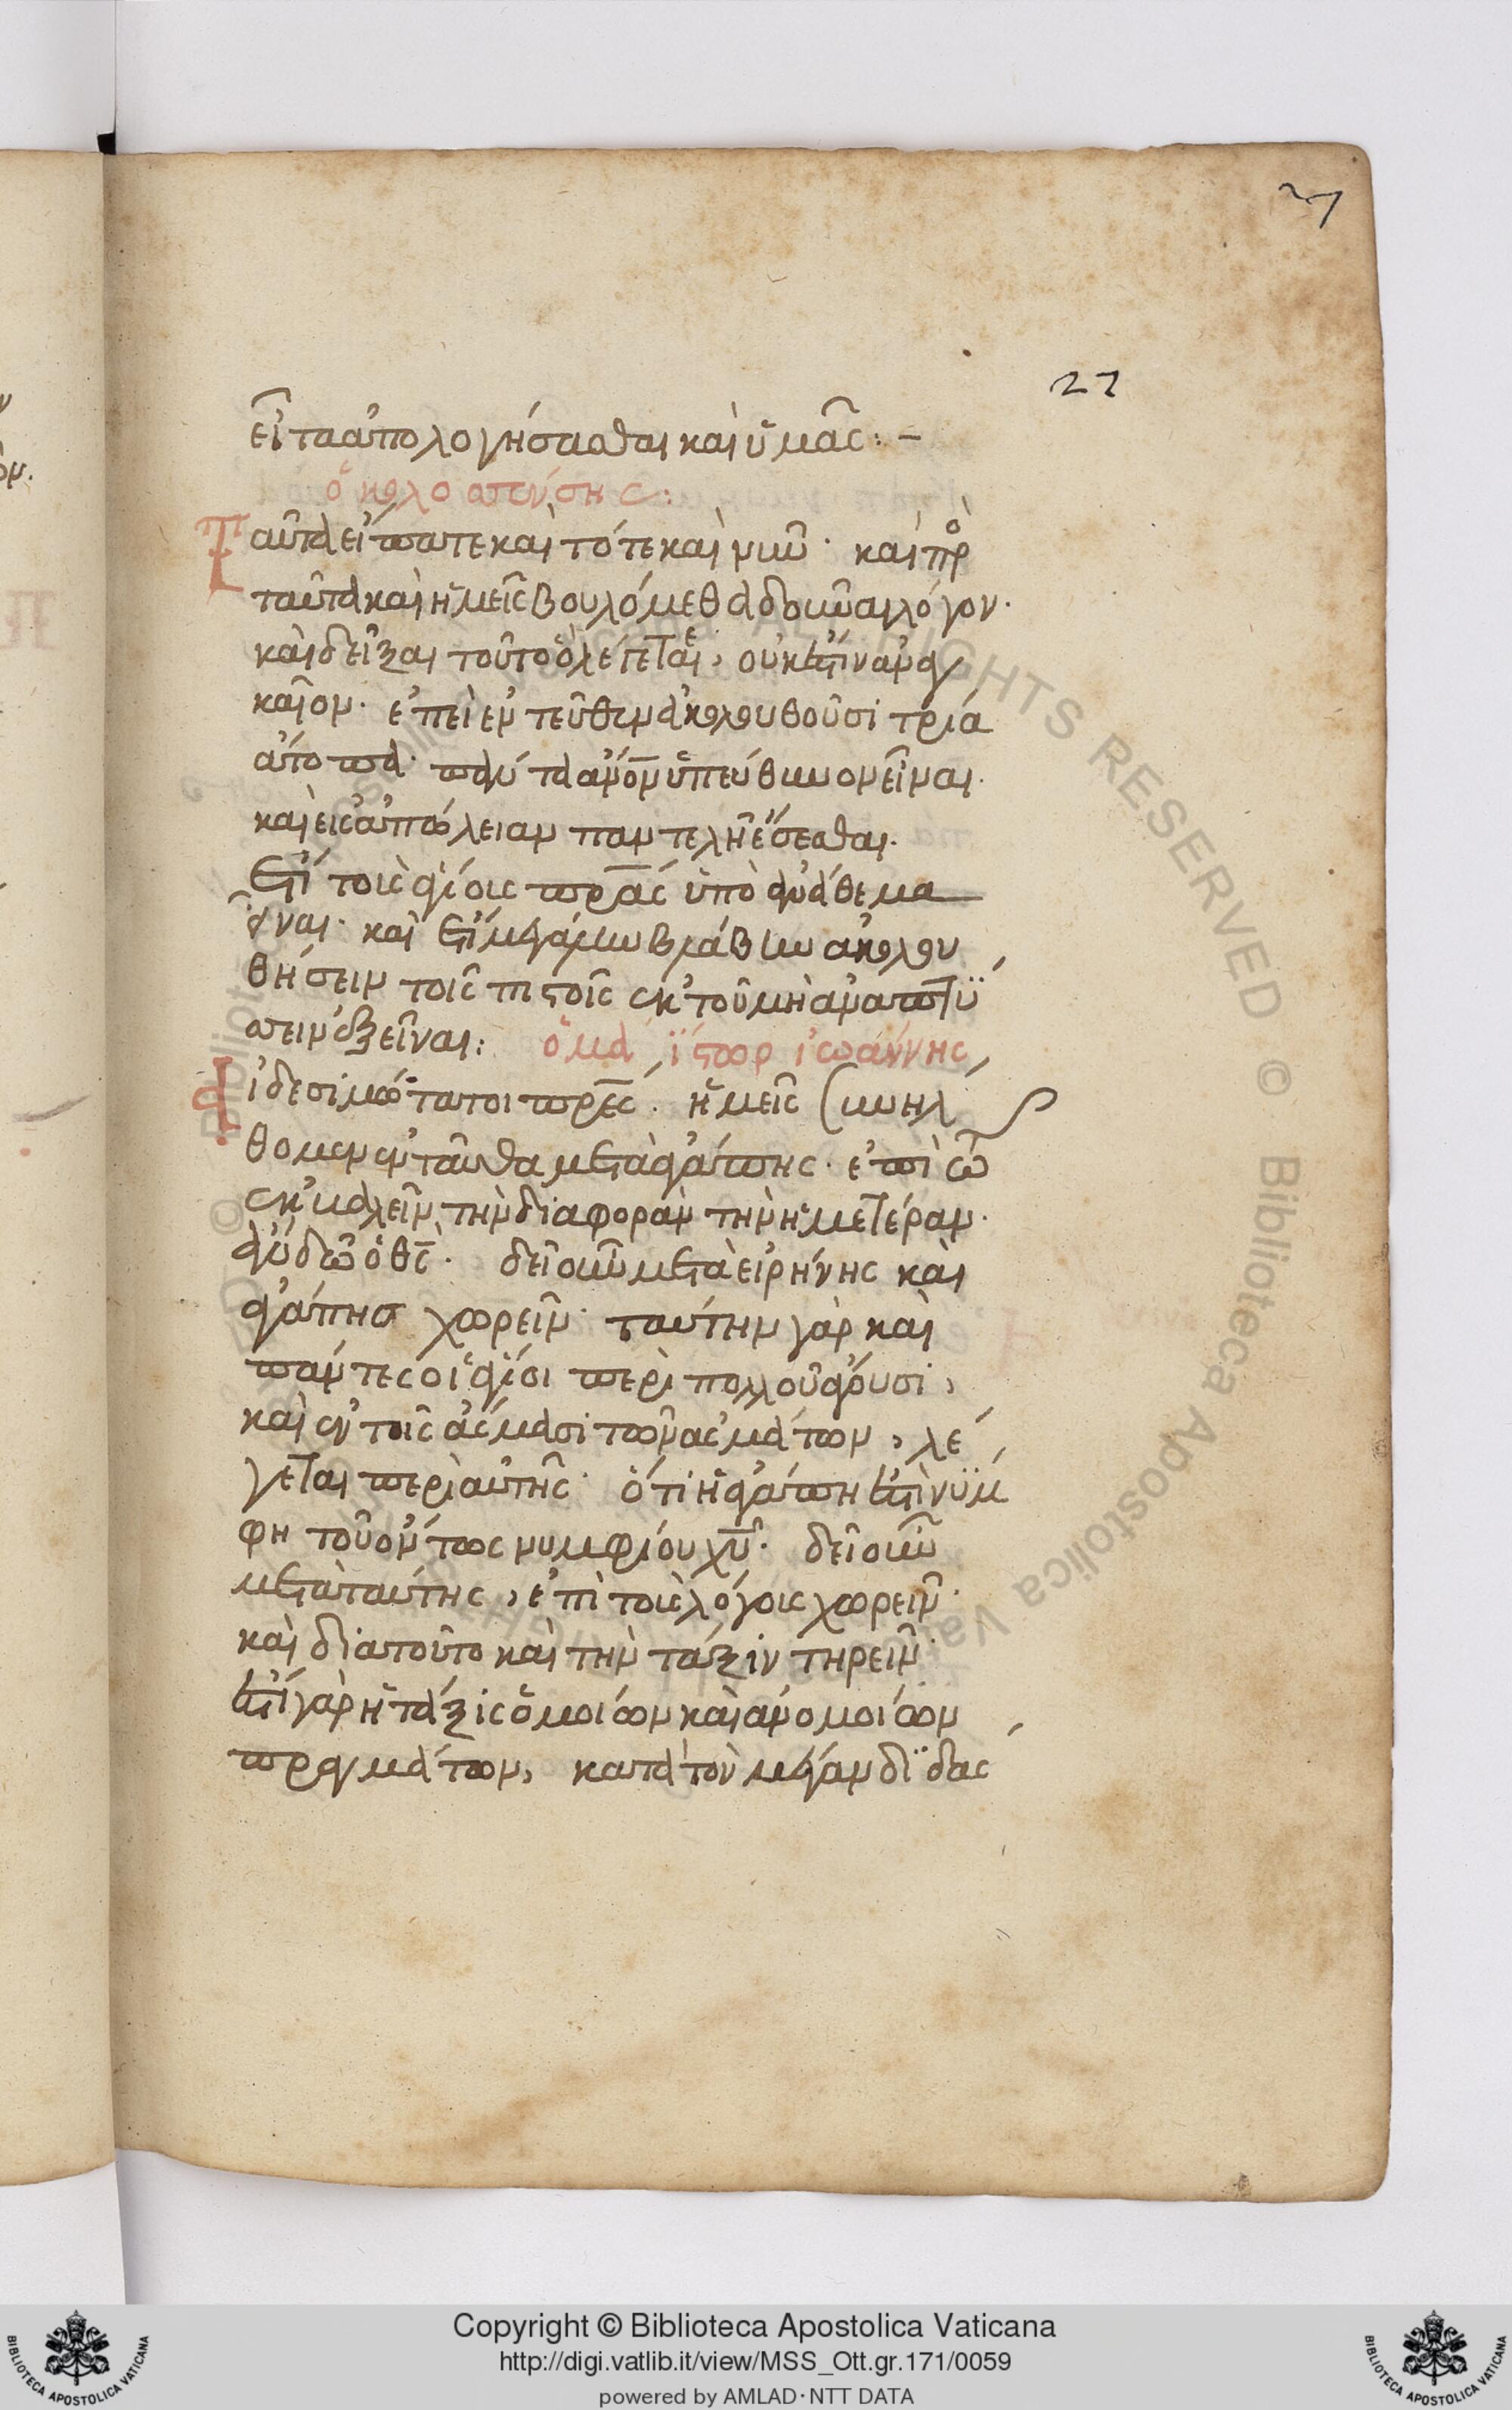 27
27
εἶτα ἀπολογήσασθαι καὶ ὑμᾶς: –
ὁ κολοσσαίνσης:
Ταῦτα εἴπατε καὶ τότε καὶ νῦν· καὶ πρὸ
ταῦτα καὶ ἡμεῖς βουλόμεθα δοῦναι λόγον·
καὶ δεῖξαι τοῦτο ὃ λέγεται, οὐκ ἔστιν ἀναγ
καῖον· ἐπεὶ ἐντεῦθεν ἀκολουθοῦσι τρία
ἄτοπα· πάντα ἄνον ὑπεύθυνον εἶναι·
καὶ εἰς ἀπώλειαν παντελῆ ἔσεσθαι·
ἔτι τοὺς ἁγίους πρας ὑπὸ ἀνάθεμα
εἶναι· καὶ ἔτι μεγάλην βλάβην ἀκολου
θήσειν τοῖς πιστοῖς ἐκ τοῦ μὴ ἀναπτύ
σσειν ἐξεῖναι: ὁ μα ΐστωρ ἰωάννης
Αἰδεσιμώτατοι πρες· ἡμεῖς συνήλ
θομεν ἐνταῦθα μετὰ ἀγάπης· ἐπὶ τῷ
ἐκβαλεῖν τὴν διαφορὰν τὴν ἡμετέραν·
εὐδοῶ ὁ θς· δεῖ οὖν μετὰ εἰρήνης καὶ
ἀγάπησ χωρεῖν· ταύτην γὰρ καὶ
πάντες οἱ ἅγιοι περὶ πολλοῦ ἄγουσι,
καὶ ἐν τοῖς ἄσμασι τῶν ἀσμάτων, λέ
γεται περὶ αὐτῆς· ὅτι ἡ ἀγάπη ἐστὶ νύμ
φη τοῦ ὄντως νυμφίου χυ· δεῖ οὖν
μετὰ ταύτης, ἐπὶ τοὺς λόγους χωρεῖν·
καὶ διατοῦτο καὶ τὴν τάξιν τηρεῖν·
ἔστι γὰρ ἡ τάξις ὁμοίων καὶ ἀνομοίων
πραγμάτων, κατὰ τὸν μέγαν διδας
Copyright © Biblioteca Apostolica Vaticana
http://digi.vatlib.it/view/MSS_Ott.gr.171/0059
powered by AMLAD·NTT DATA